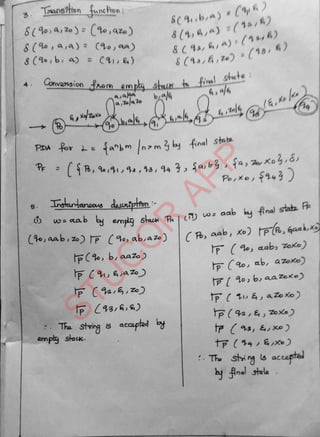 3. Transition function:
δ(q0, a, z0) = (q0, az0)
δ(q0, a, a) = (q0, aa)
δ(q0, b, a) = (q1, ε)
δ(q1, b, a) = (q1, ε)
δ(q1, ε, a) = (q2, ε)
δ(q2, ε, a) = (q2, ε)
δ(q2, ε, z0) = (q3, ε)
4. Conversion from empty stack to final state:
a, a/aa
a, z0/az0
b, a/ε
ε, a/ε
P0 ε, x0/z0x0 q0 b, a/ε q1 ε, a/ε q2 ε, z0/ε q3 ε, x0/x0 q4
PDA for L = {aⁿbᵐ / n>m} by final state
PF = ({P0, q0, q1, q2, q3, q4}, {a, b}, {a, z0, x0}, δ,
P0, x0, {q4})
5. Instantaneous description:-
i) w = aab by empty stack PN
(q0, aab, z0) ⊢P (q0, ab, az0)
⊢P (q0, b, aaz0)
⊢P (q1, ε, az0)
⊢P (q2, ε, z0)
⊢P (q3, ε, ε)
∴ The string is accepted by
empty stack.
ii) w = aab by final state PF
(P0, aab, x0) ⊢P (P0, εaab, x0)
⊢P (q0, aab, z0x0)
⊢P (q0, ab, az0x0)
⊢P (q0, b, aaz0x0)
⊢P (q1, ε, az0x0)
⊢P (q2, ε, z0x0)
⊢P (q3, ε, x0)
⊢P (q4, ε, x0)
∴ The string is accepted
by final state.
STUCOR APP